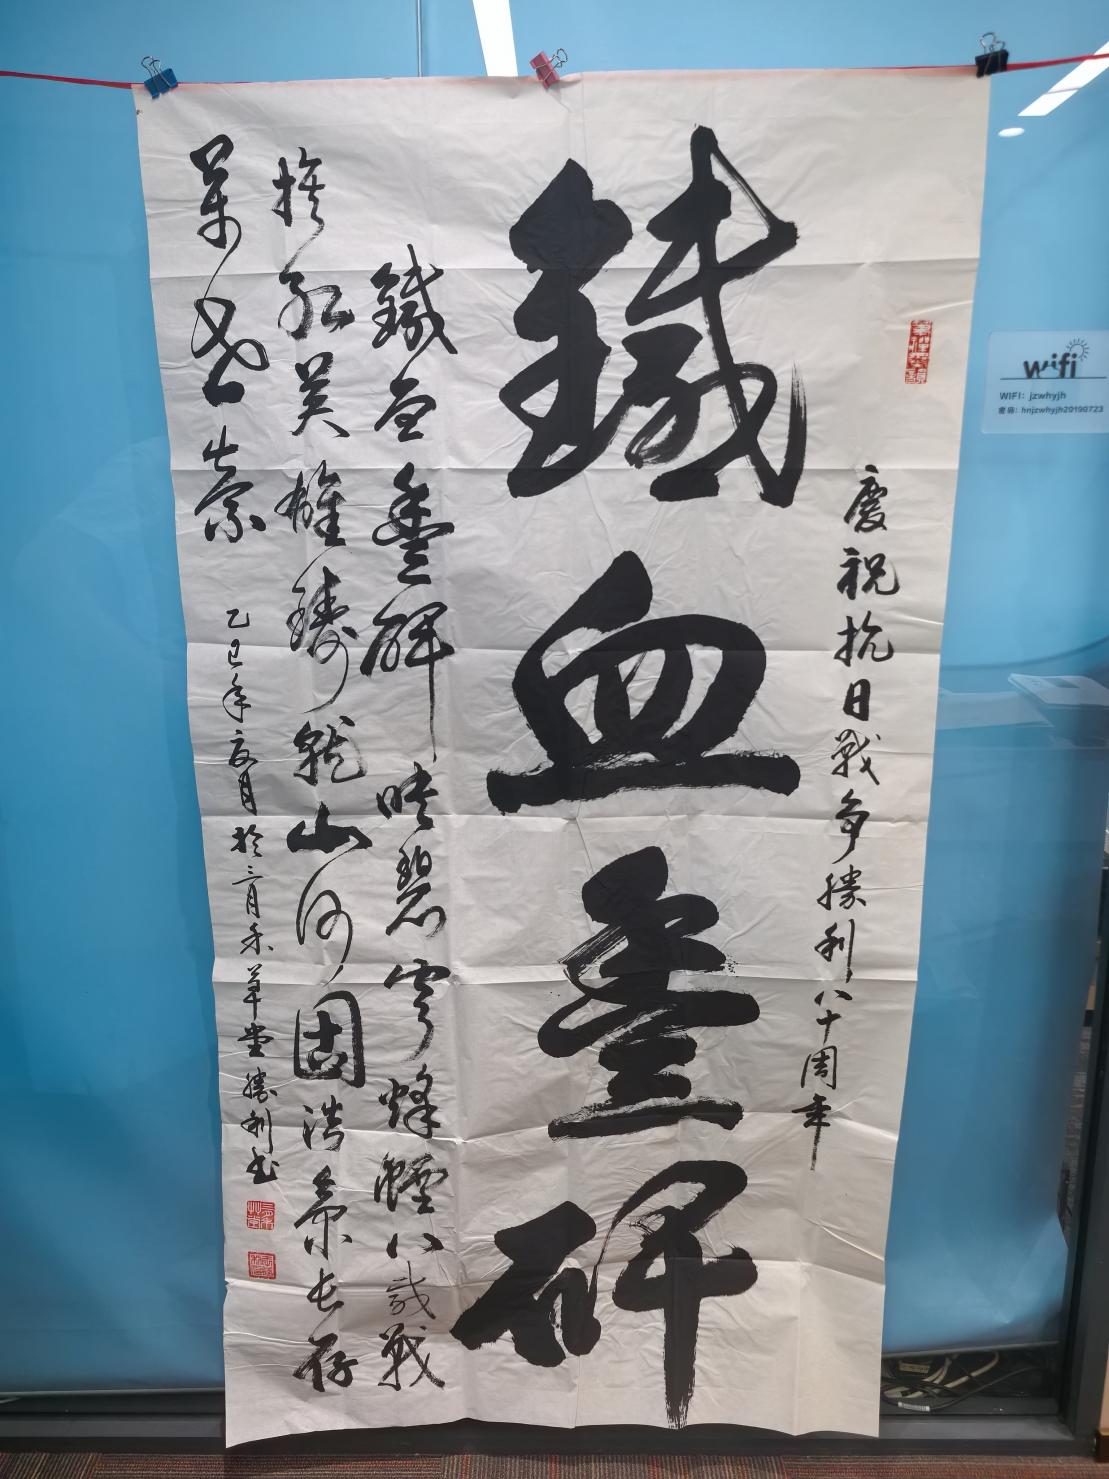 慶祝抗日戰争勝利八十周年
鐵血豐碑
鐵血豐碑映碧穹烽煙八載戰
挨紅英雄鑄就山河固浩氣长存
萬世崇
乙巳年夏月於三月禾草堂勝利书
wifi
WIFI: jzwhyjh
密码: hnjzwhyjh20190723